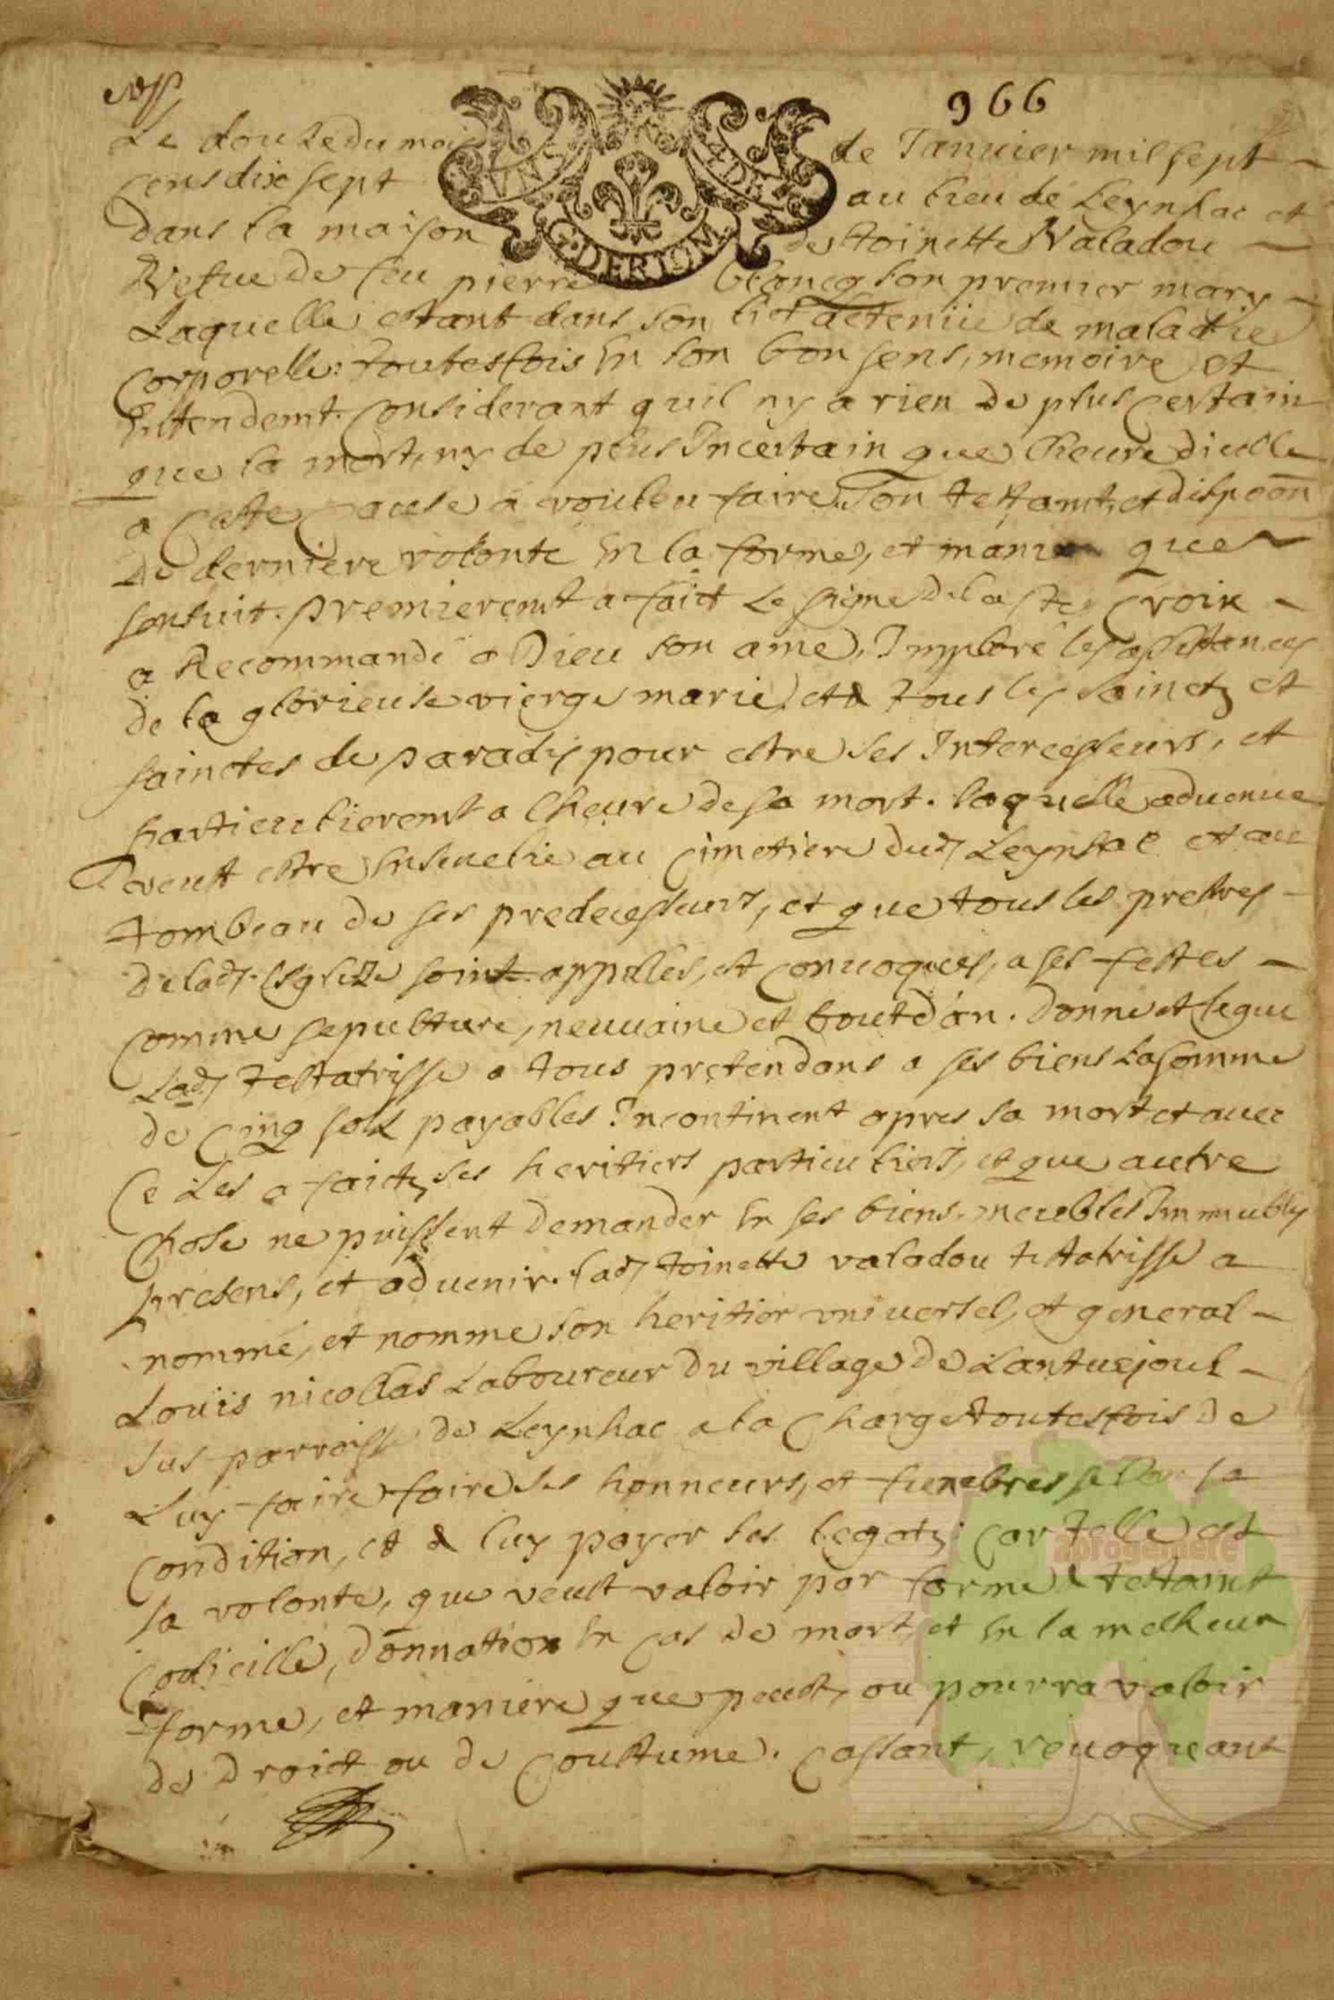 966
Le douze du mois de Januier mil sept
cens dix sept au lieu de Leynhac et
dans la maison de toinette Valadou
Vefue de feu pierre blancq son premier mary
Laquelle estant dans son lict detenüe de maladie
corporelle: toutesfois en son bon sens, memoire et
Entendemt. Considerant quil ny a rien de plus certain
que la mort, ny de plus Incertain que lheure dicelle
a ceste cause a vouleu faire son testamt, et dispoōn
de derniere volonté en la forme, et maniere que
sensuit. premieremt a faict le signe de la ste Croix
a Recommandé a Dieu son ame, Imploré les assistances
de la glorieuse vierge marie, et a tous les saincts et
sainctes de paradis pour estre ses Intercesseurs, et
particulieremt a lheure de sa mort. laquelle aduenue
veut estre Enseuelie au Cimetiere dud Leynhac et au
tombeau de ses predecesseurs, et que tous les prestres
de lad. esglize soint appellés, et conuoqués, a ses festes
comme sepulture, neuuaine et bout dan. Donne et legue
Lad testatrisse a tous pretendans a ses biens La somme
de cinq sols payables Incontinent apres sa mort et auec
ce Les a faicts ses heritiers particuliers, et que autre
chose ne puissent demander en ses biens meubles Immeubles
presens, et aduenir. lad toinette valadou testatrisse a
nommé, et nomme son heritier vniuersel, et general
Louis nicollas Laboureur du village de Lantuejoul
sus parroisse de Leynhac a la Charge toutesfois de
Luy faire faire ses honneurs, et funebres selon sa
condition, et de luy payer ses legats; car telle est
sa volonte, que veust valoir par forme de testamt
codicille, donnation en cas de mort, et en la melheur
forme, et maniere que peust, ou pourra valoir
de droict ou de coustume. Cassant, reuoqueant
aprogemere